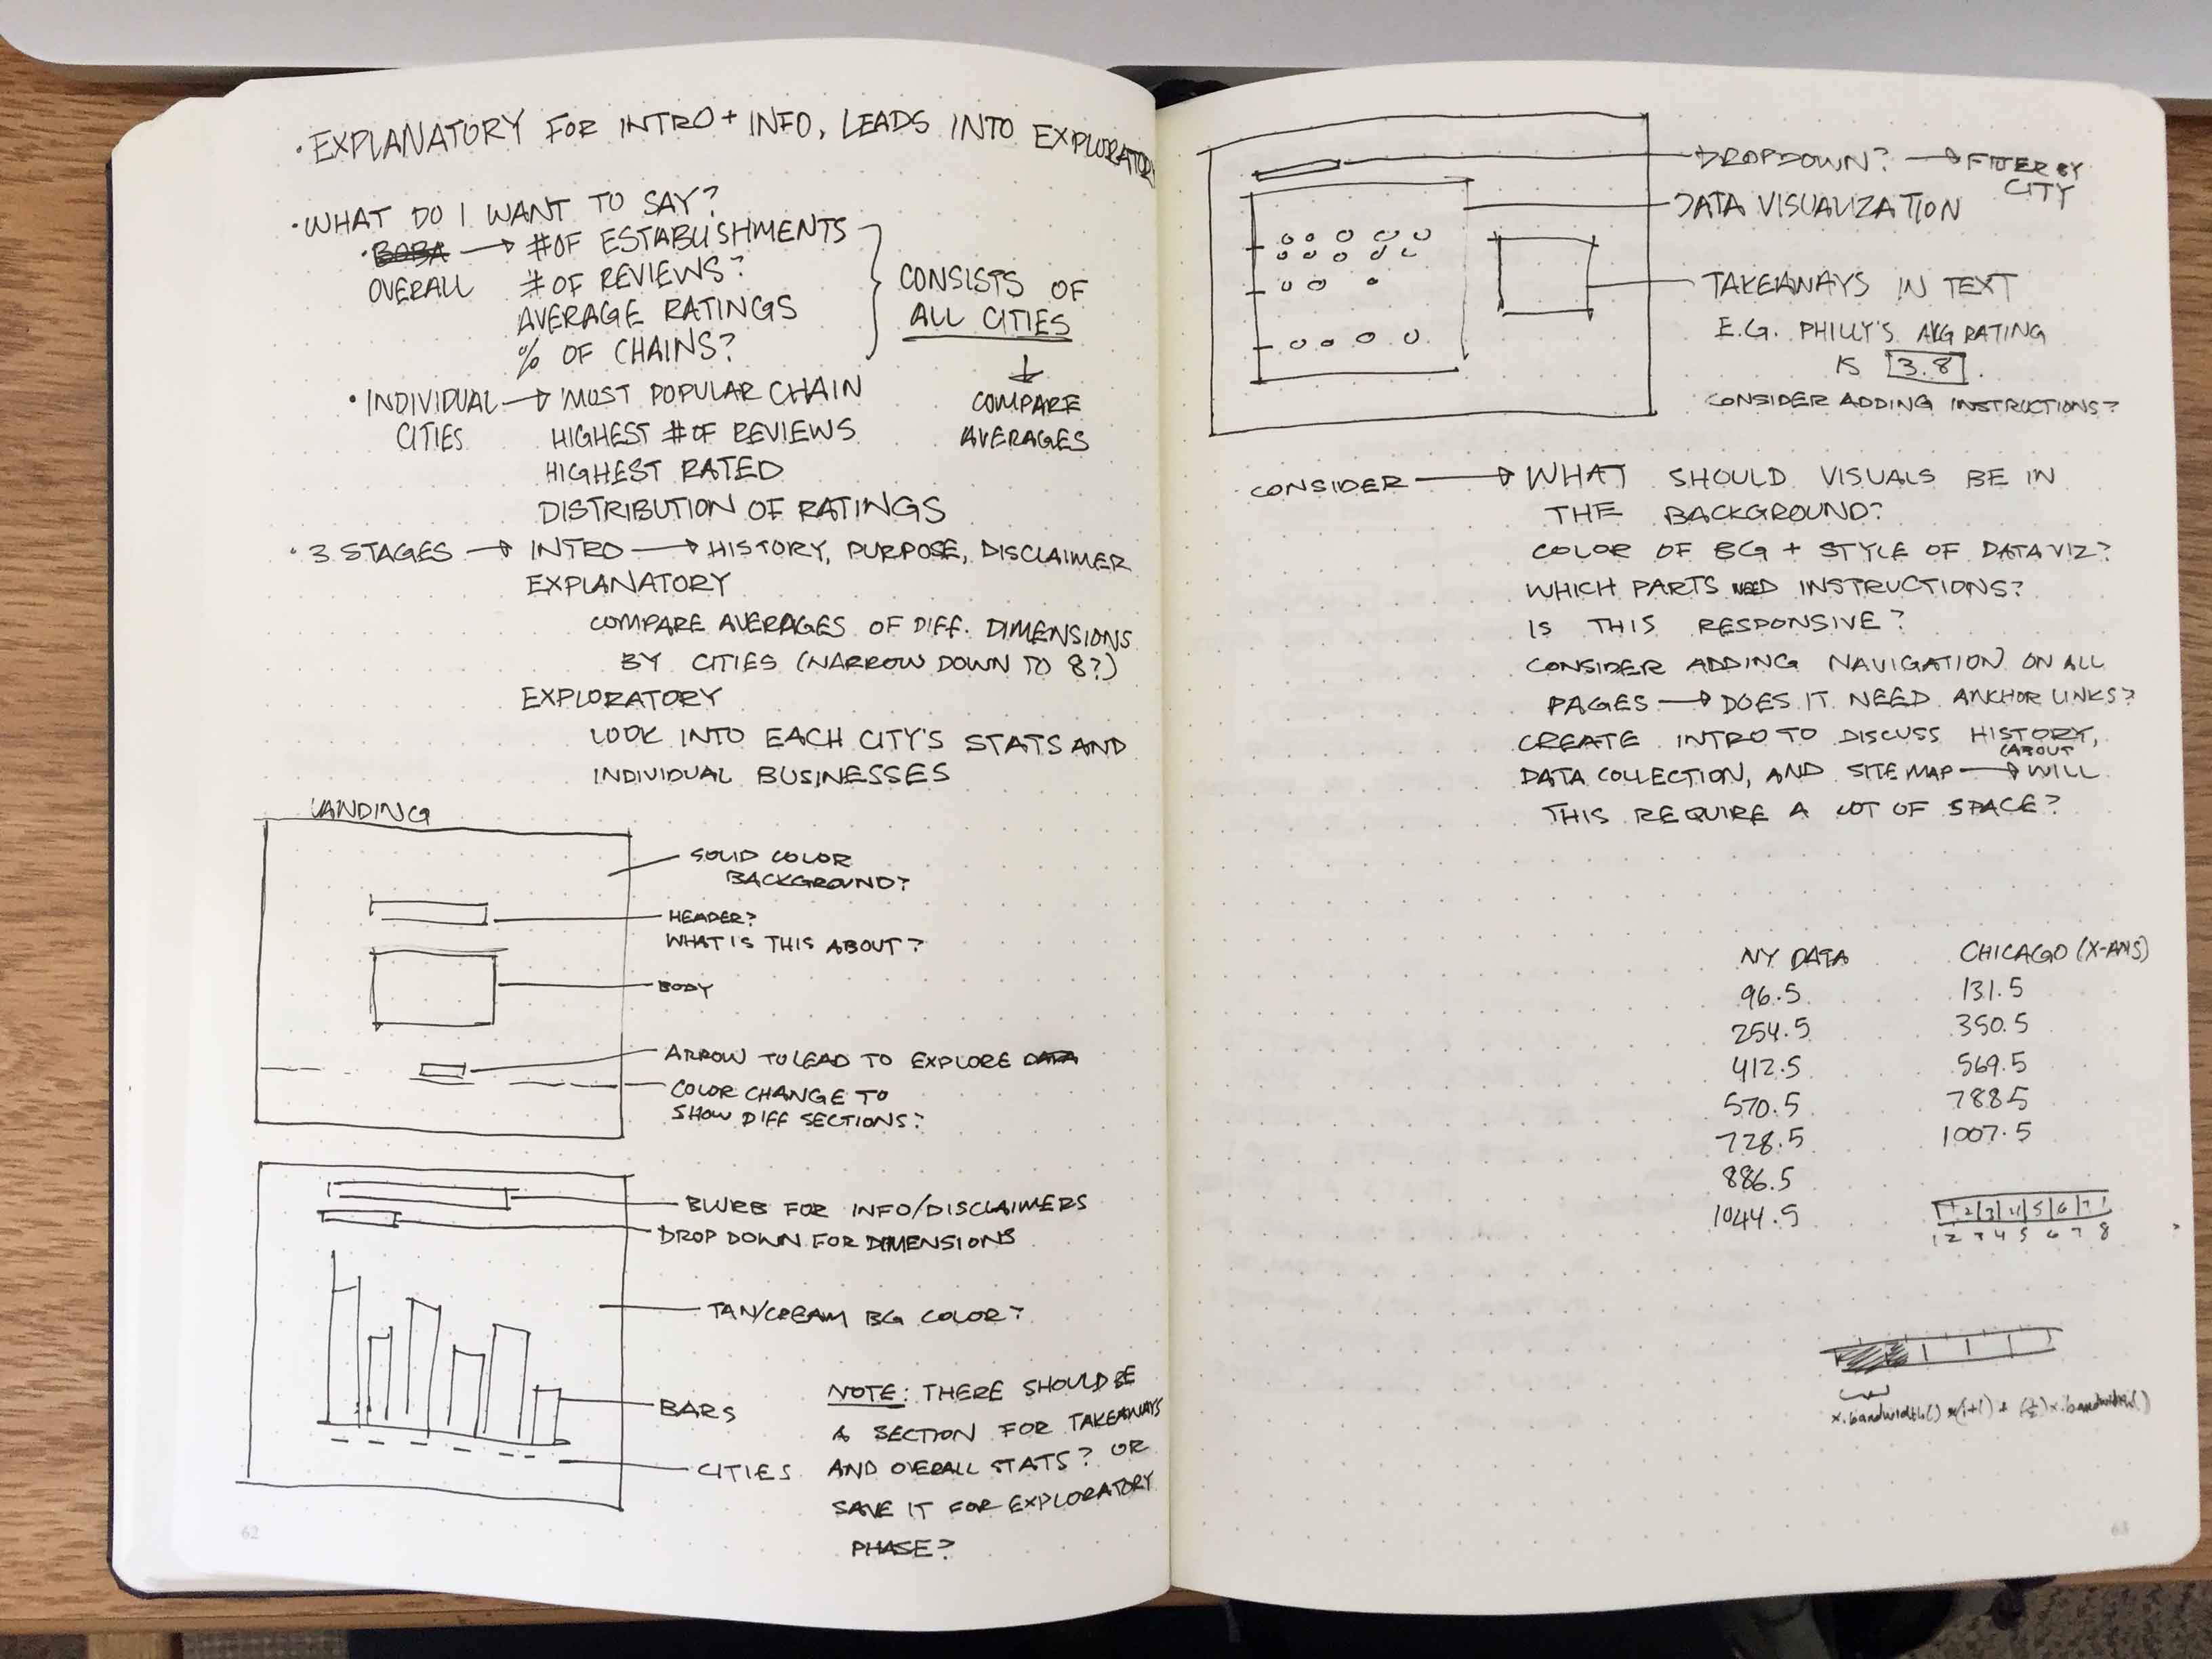 • EXPLANATORY FOR INTRO + INFO, LEADS INTO EXPLORATORY
• WHAT DO I WANT TO SAY?
• BOBA → # OF ESTABLISHMENTS
OVERALL # OF REVIEWS?
AVERAGE RATINGS
% OF CHAINS?
CONSISTS OF
ALL CITIES
↓
COMPARE
AVERAGES
• INDIVIDUAL → MOST POPULAR CHAIN
CITIES HIGHEST # OF REVIEWS
HIGHEST RATED
DISTRIBUTION OF RATINGS
• 3 STAGES → INTRO → HISTORY, PURPOSE, DISCLAIMER
EXPLANATORY
COMPARE AVERAGES OF DIFF. DIMENSIONS
BY CITIES (NARROW DOWN TO 8?)
EXPLORATORY
LOOK INTO EACH CITY'S STATS AND
INDIVIDUAL BUSINESSES
LANDING
SOLID COLOR
BACKGROUND?
HEADER?
WHAT IS THIS ABOUT?
BODY
ARROW TO LEAD TO EXPLORE DATA
COLOR CHANGE TO
SHOW DIFF SECTIONS?
BLURB FOR INFO/DISCLAIMERS
DROP DOWN FOR DIMENSIONS
TAN/CREAM BG COLOR?
BARS
CITIES
NOTE: THERE SHOULD BE
A SECTION FOR TAKEAWAYS
AND OVERALL STATS? OR
SAVE IT FOR EXPLORATORY
PHASE?
62
DROPDOWN? → FILTER BY
CITY
DATA VISUALIZATION
TAKEAWAYS IN TEXT
E.G. PHILLY'S AVG RATING
IS 3.8.
CONSIDER ADDING INSTRUCTIONS?
CONSIDER → WHAT SHOULD VISUALS BE IN
THE BACKGROUND?
COLOR OF BG + STYLE OF DATA VIZ?
WHICH PARTS NEED INSTRUCTIONS?
IS THIS RESPONSIVE?
CONSIDER ADDING NAVIGATION ON ALL
PAGES → DOES IT NEED ANCHOR LINKS?
CREATE INTRO TO DISCUSS HISTORY,
(ABOUT
DATA COLLECTION, AND SITE MAP → WILL
THIS REQUIRE A LOT OF SPACE?
NY DATA CHICAGO (X-AXIS)
96.5 131.5
254.5 350.5
412.5 569.5
570.5 788.5
728.5 1007.5
886.5
1044.5
1 2 3 4 5 6 7
1 2 3 4 5 6 7 8
x.bandwidth() * (i+1) + (½)x.bandwidth()
63